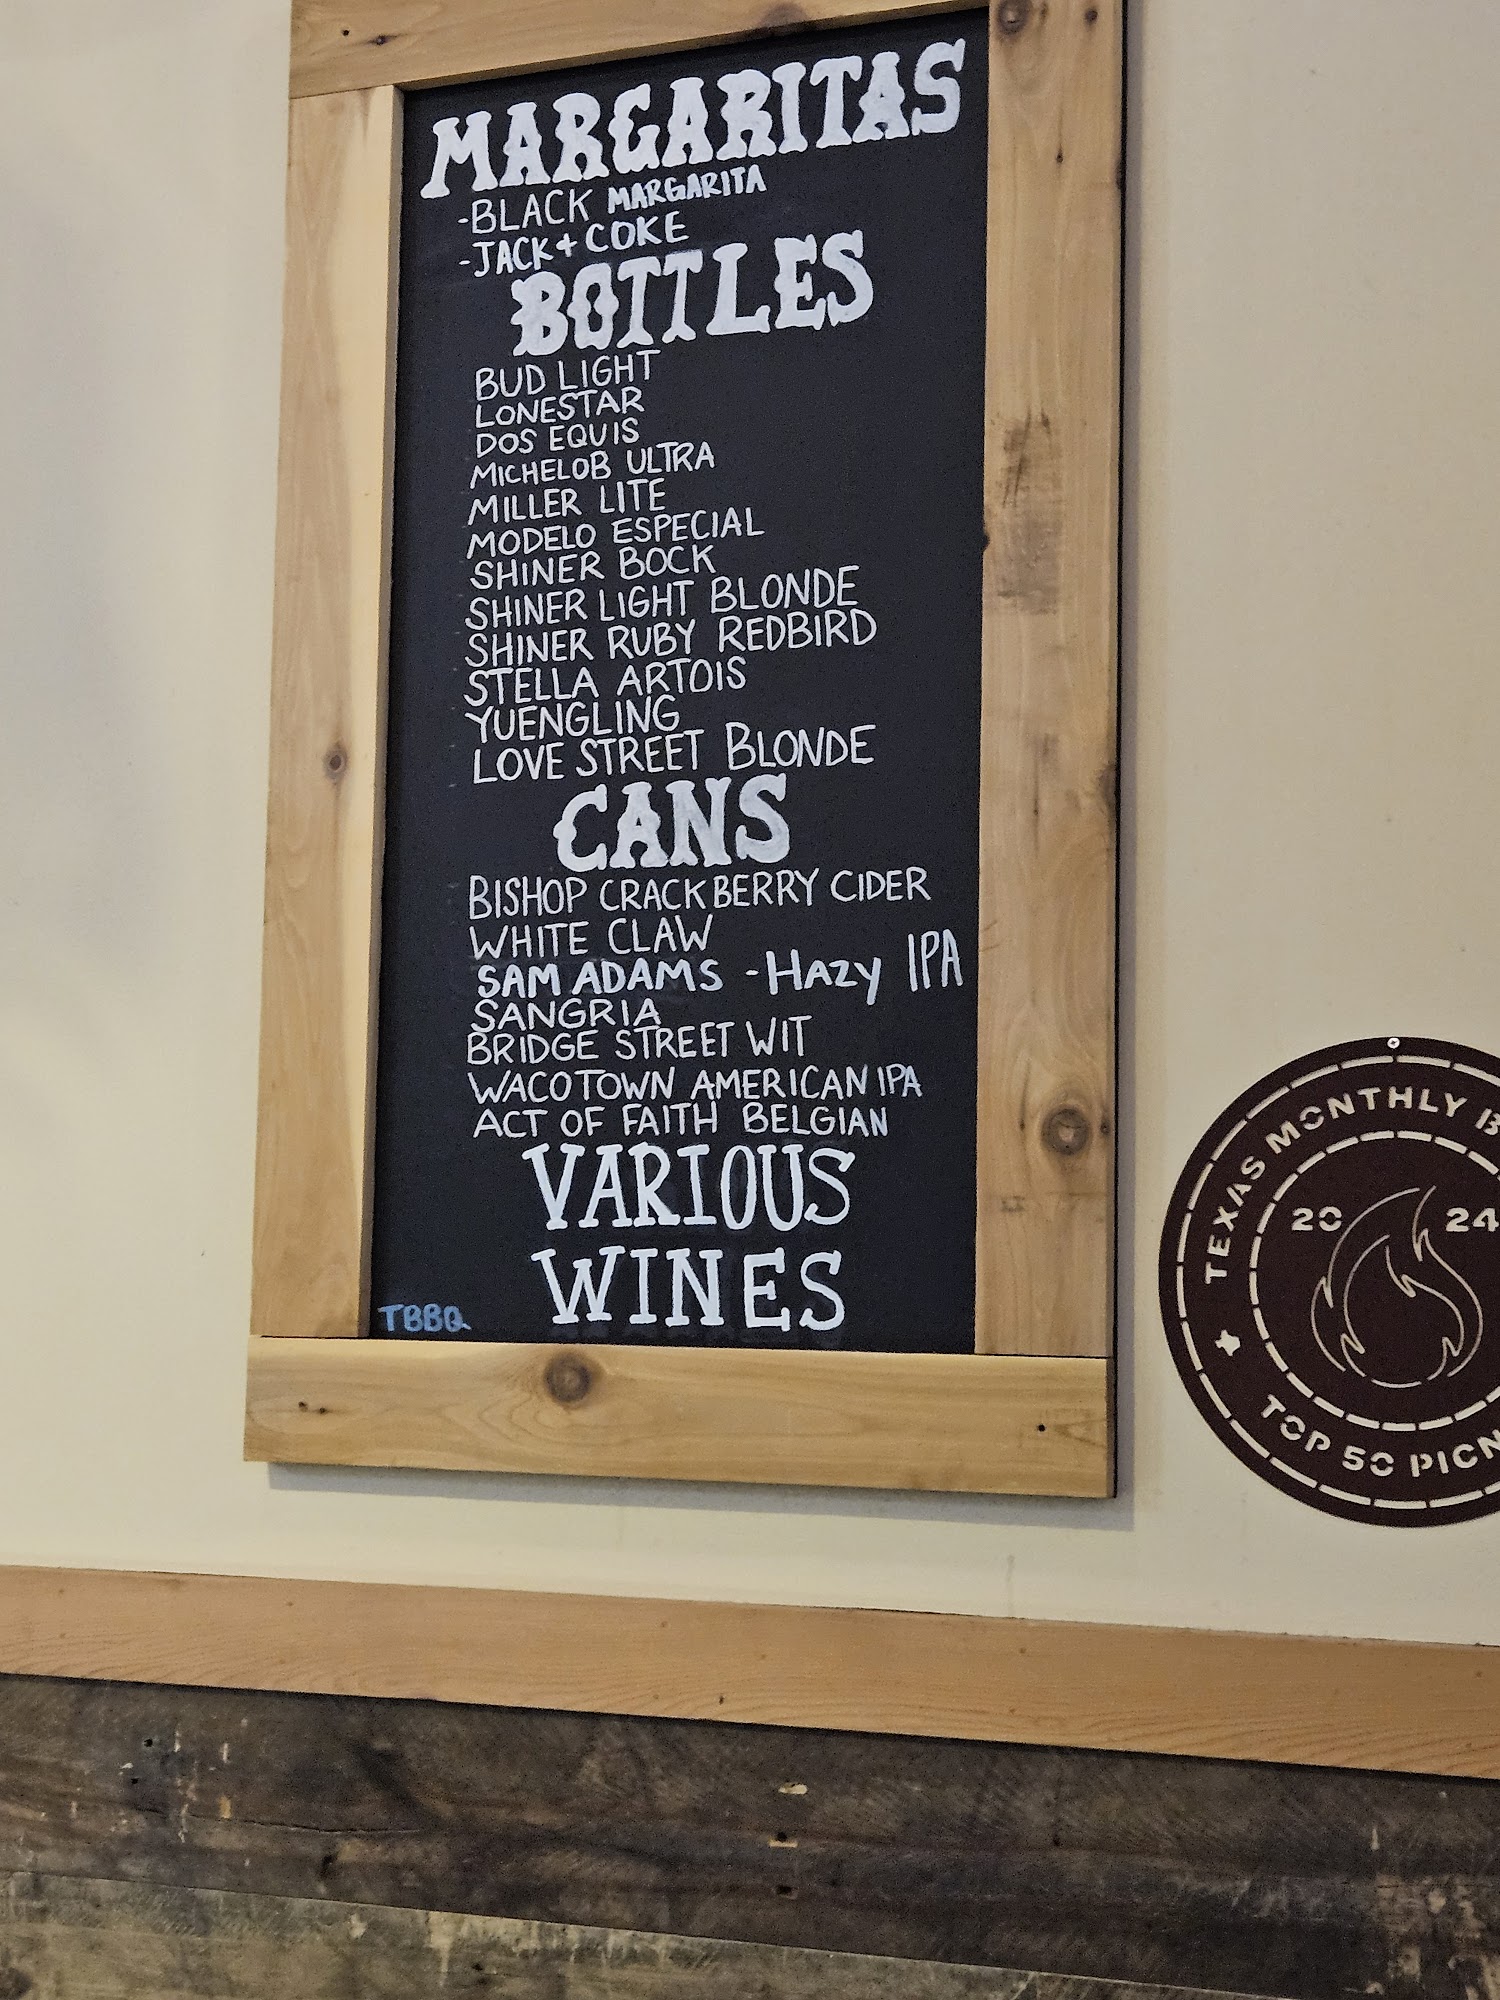 MARGARITAS
-BLACK MARGARITA
-JACK + COKE
BOTTLES
BUD LIGHT
LONESTAR
DOS EQUIS
MICHELOB ULTRA
MILLER LITE
MODELO ESPECIAL
SHINER BOCK
SHINER LIGHT BLONDE
SHINER RUBY REDBIRD
STELLA ARTOIS
YUENGLING
LOVE STREET BLONDE
CANS
BISHOP CRACKBERRY CIDER
WHITE CLAW
SAM ADAMS - HAZY IPA
SANGRIA
BRIDGE STREET WIT
WACOTOWN AMERICAN IPA
ACT OF FAITH BELGIAN
VARIOUS
WINES
TBBQ
TEXAS MONTHLY
20 24
TOP 50